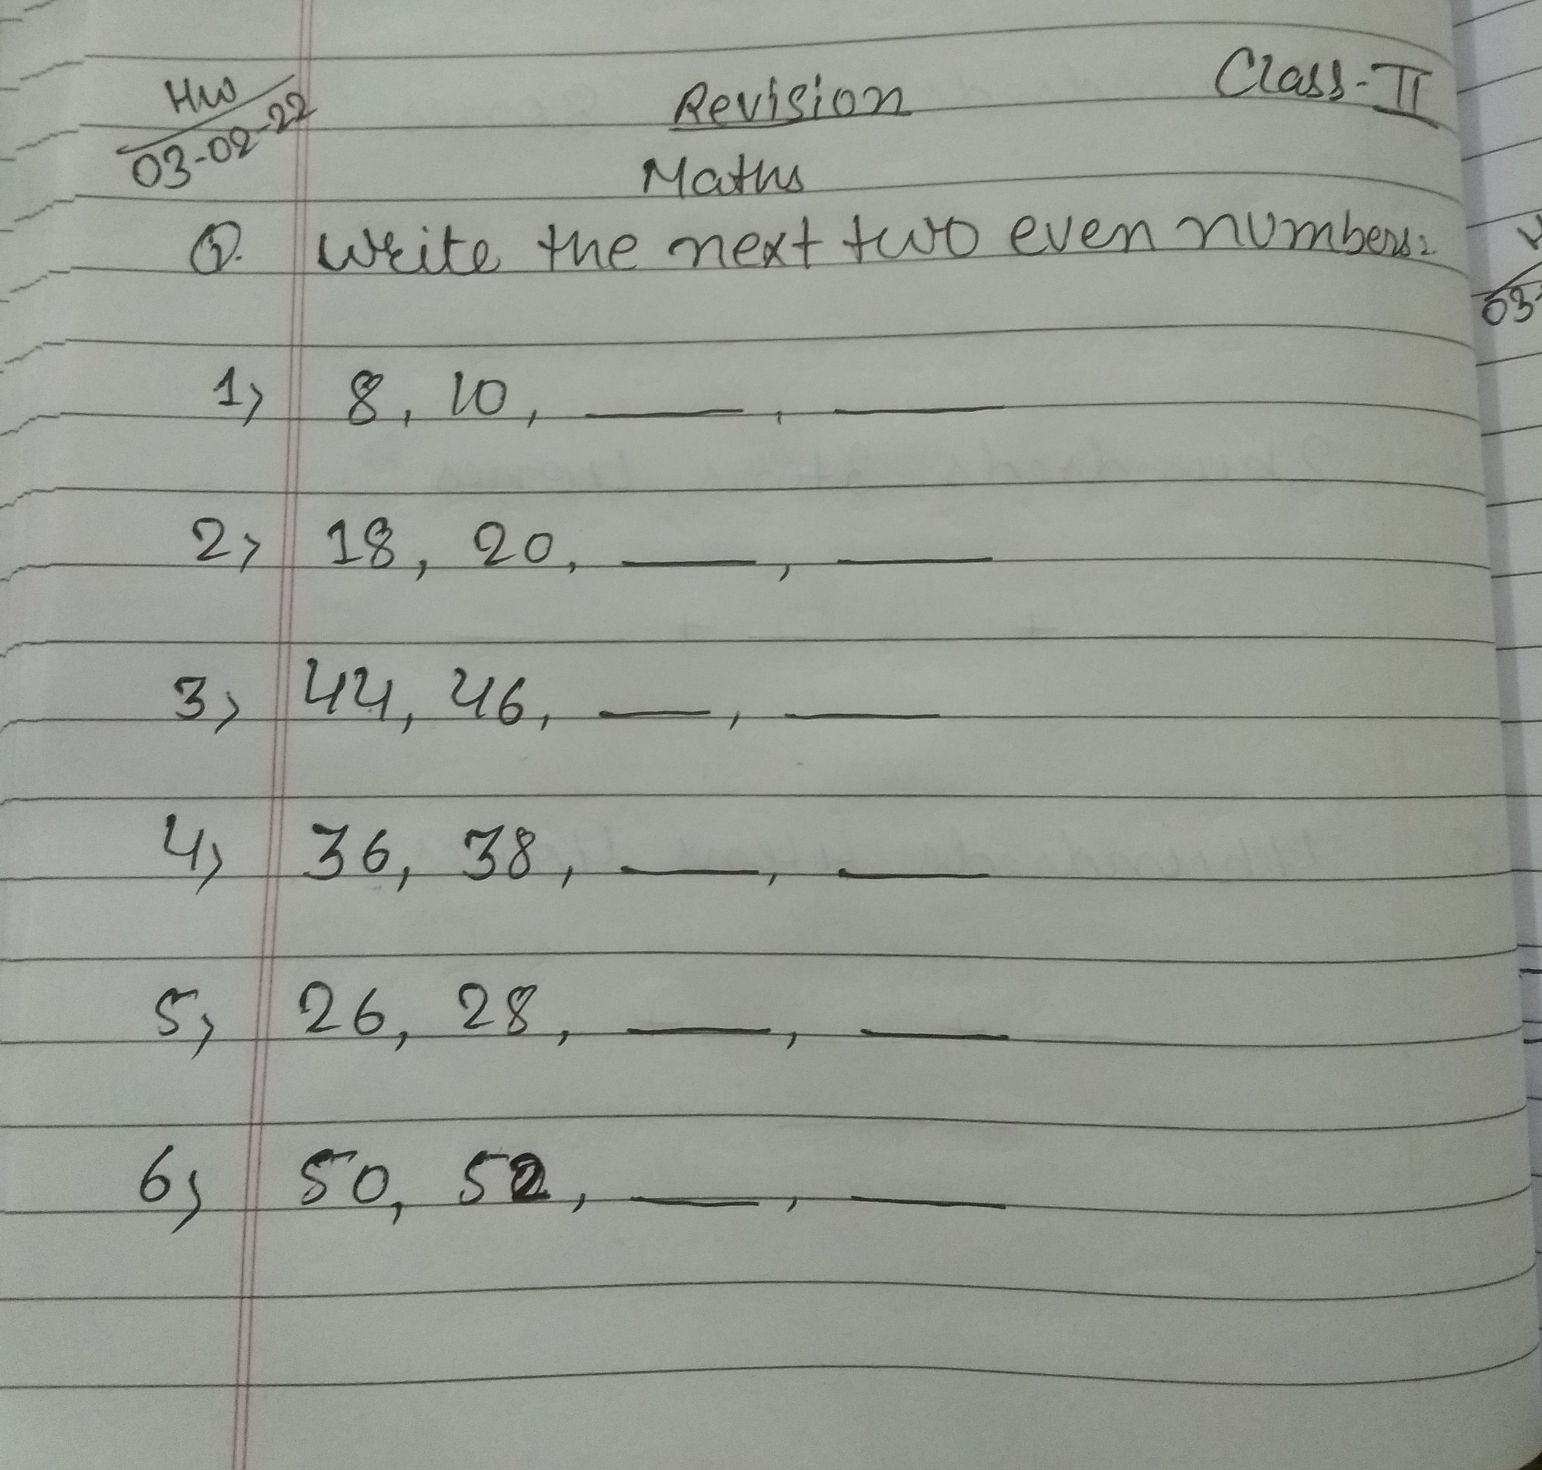 HW Revision Class-II
03-02-22
Maths
Q. Write the next two even numbers:
1) 8, 10, ____, ____
2) 18, 20, ____, ____
3) 44, 46, ____, ____
4) 36, 38, ____, ____
5) 26, 28, ____, ____
6) 50, 52, ____, ____
03-